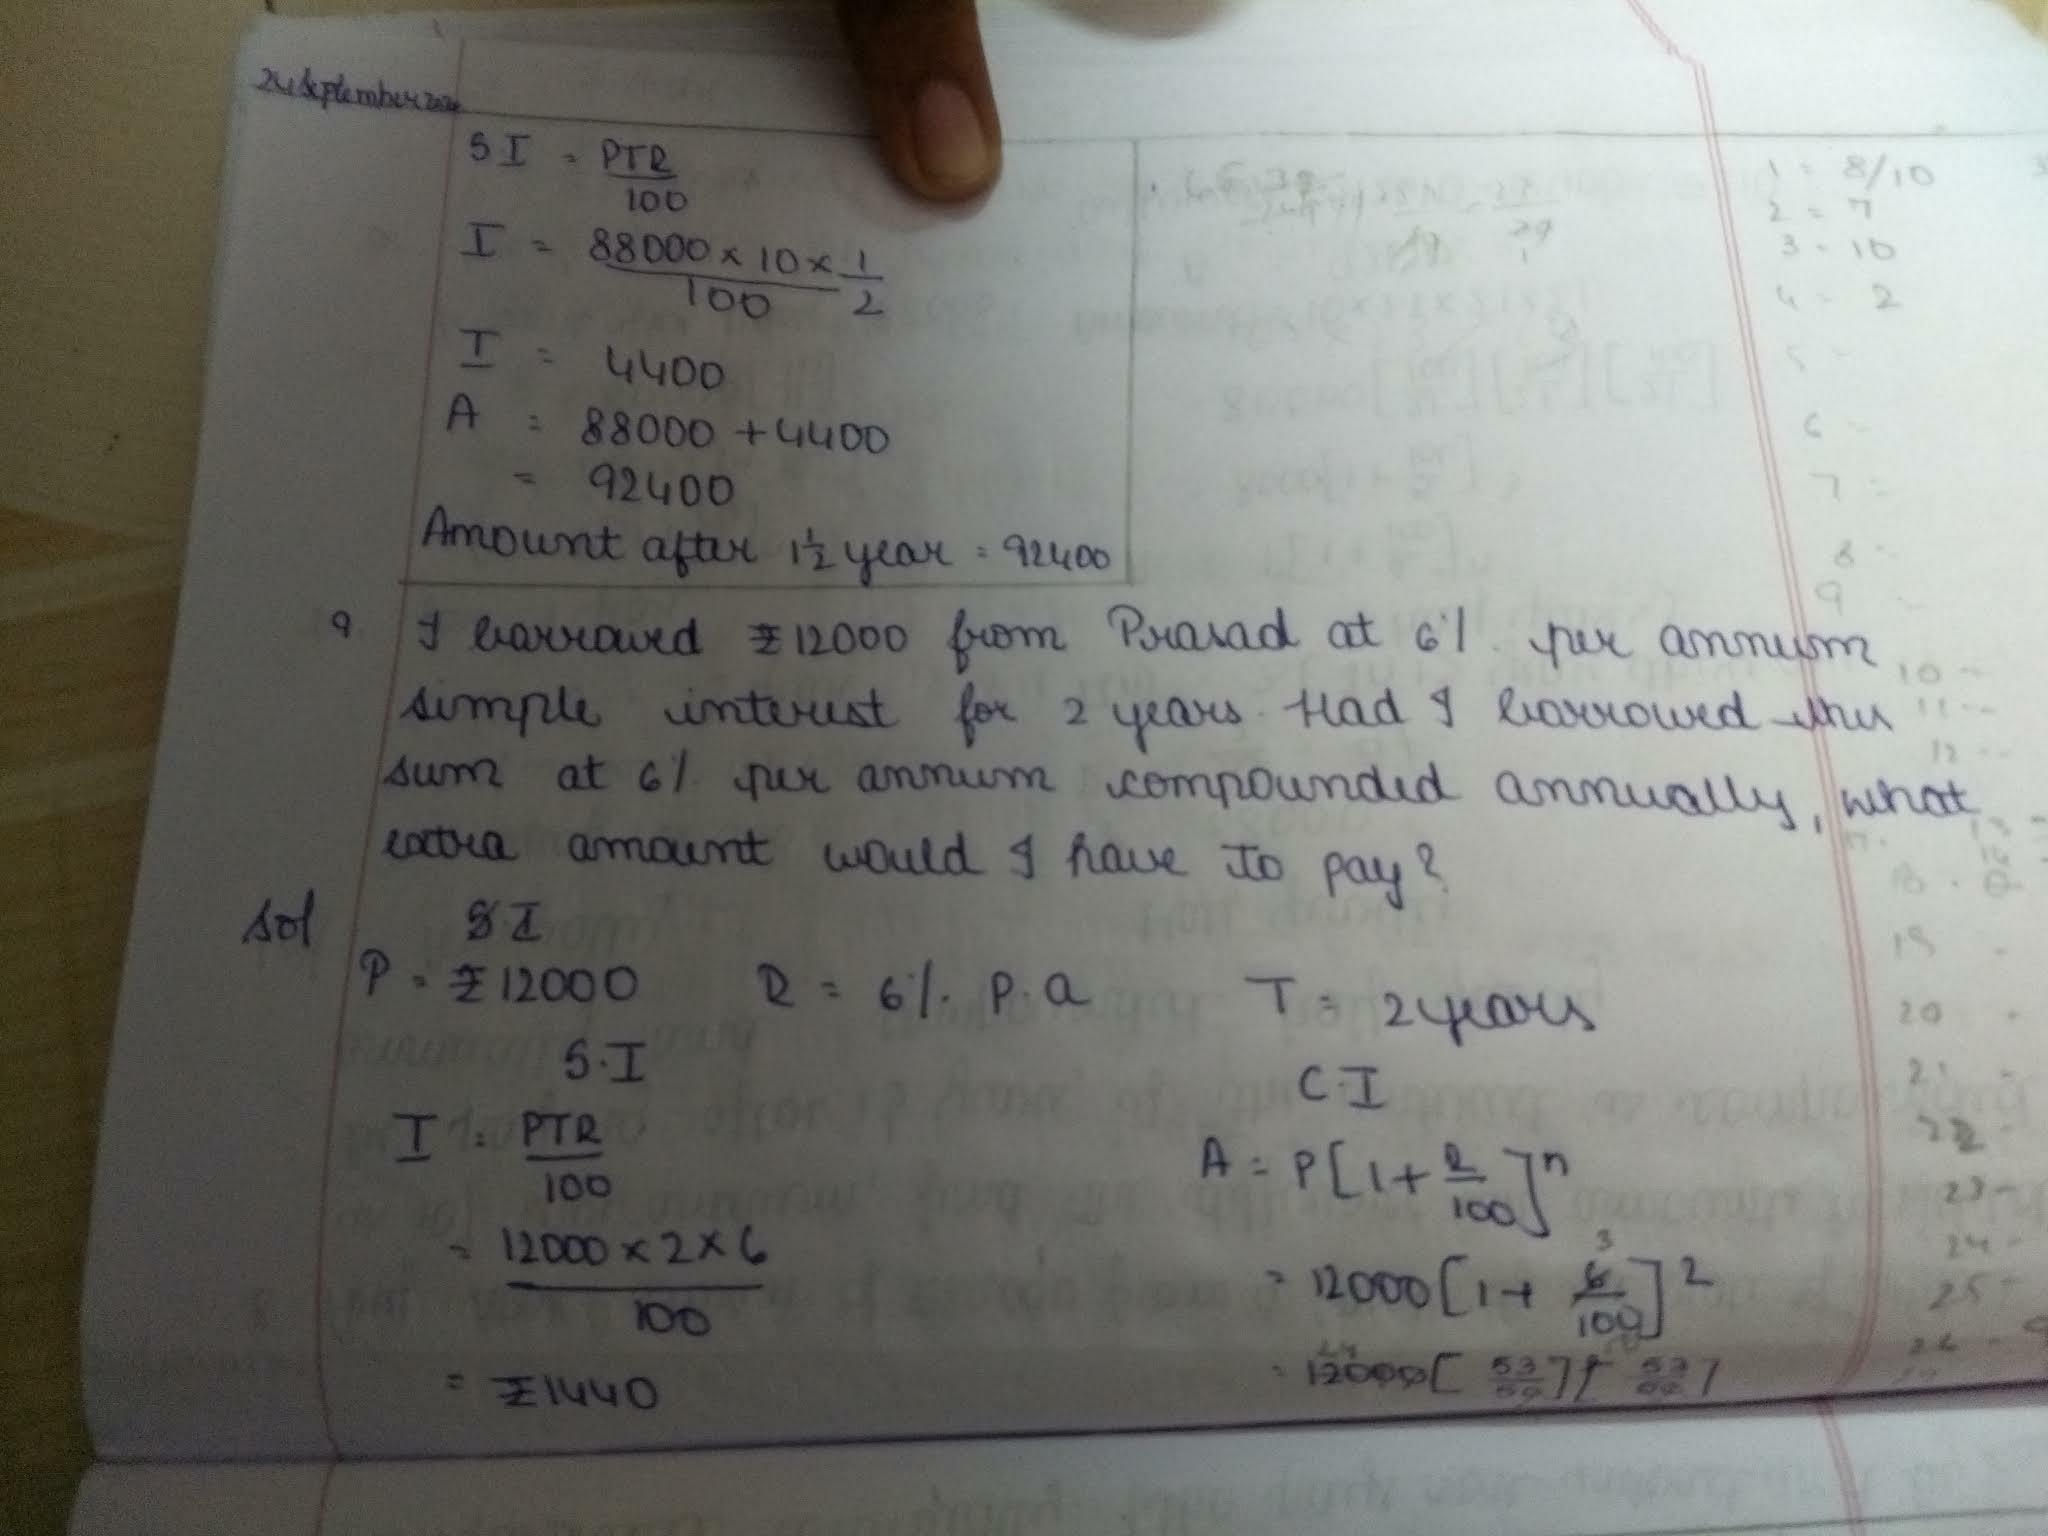 24 September
SI = PTR/100
I = 88000 × 10 × 1/100 2
I = 4400
A = 88000 + 4400
= 92400
Amount after 1½ year = 92400
9 I borrowed ₹12000 from Prasad at 6% per annum
simple interest for 2 years. Had I borrowed this
sum at 6% per annum compounded annually, what
extra amount would I have to pay?
Sol S I
P = ₹12000 R = 6% p.a T = 2 years
S.I
C.I
I = PTR/100
A = P[1 + R/100]ⁿ
= 12000 × 2 × 6/100
= 12000[1 + 6/100]² 3
= ₹1440
= 12000[53/50][53/50]
1 = 8/10
2 = 7
3 = 10
4 = 2
5 -
6 -
7 =
8 -
9 -
10 -
11 -
12 -
19 -
20 -
21 -
22 -
23 -
24 -
25 -
26 -